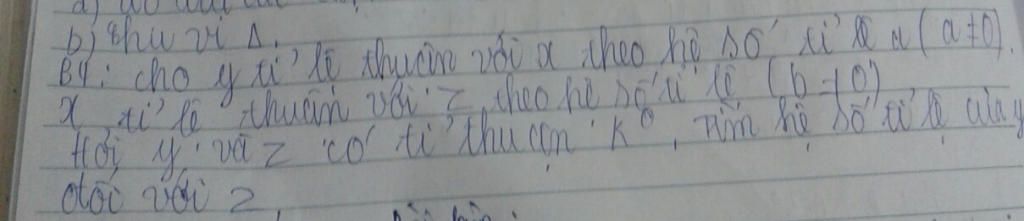 b) chu vi Δ.
B4: cho y tỉ lệ thuận với x theo hệ số tỉ lệ a (a≠0).
x tỉ lệ thuận với z theo hệ số tỉ lệ (b≠0)
Hỏi y và z có tỉ thuận k⁰, Tìm hệ số tỉ lệ của y
đối với z